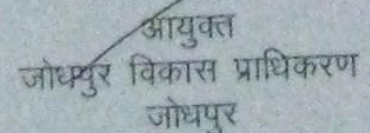 आयुक्त
जोधपुर विकास प्राधिकरण
जोधपुर